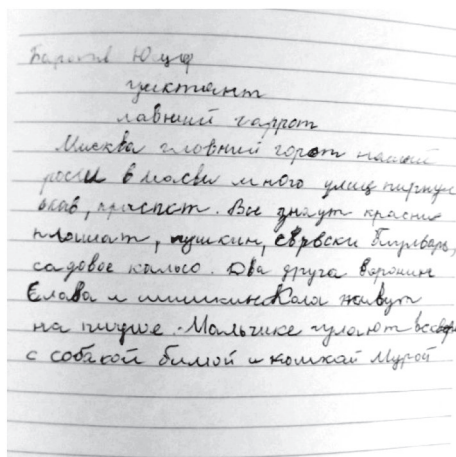 Баротов Юсуф
диктиант
лавний гаррот
Масква гловний горот нашей
росии в масви много улиц пириул
оков, праспст. Все знаут красния
плошат, пушкин, сврвски булварь,
садовое кальсо. Два друга воронин
Слава и шишкин Коля живут
на тицное. Мальчике гулают вссквере
с собакой бимой и кошкай Мурой